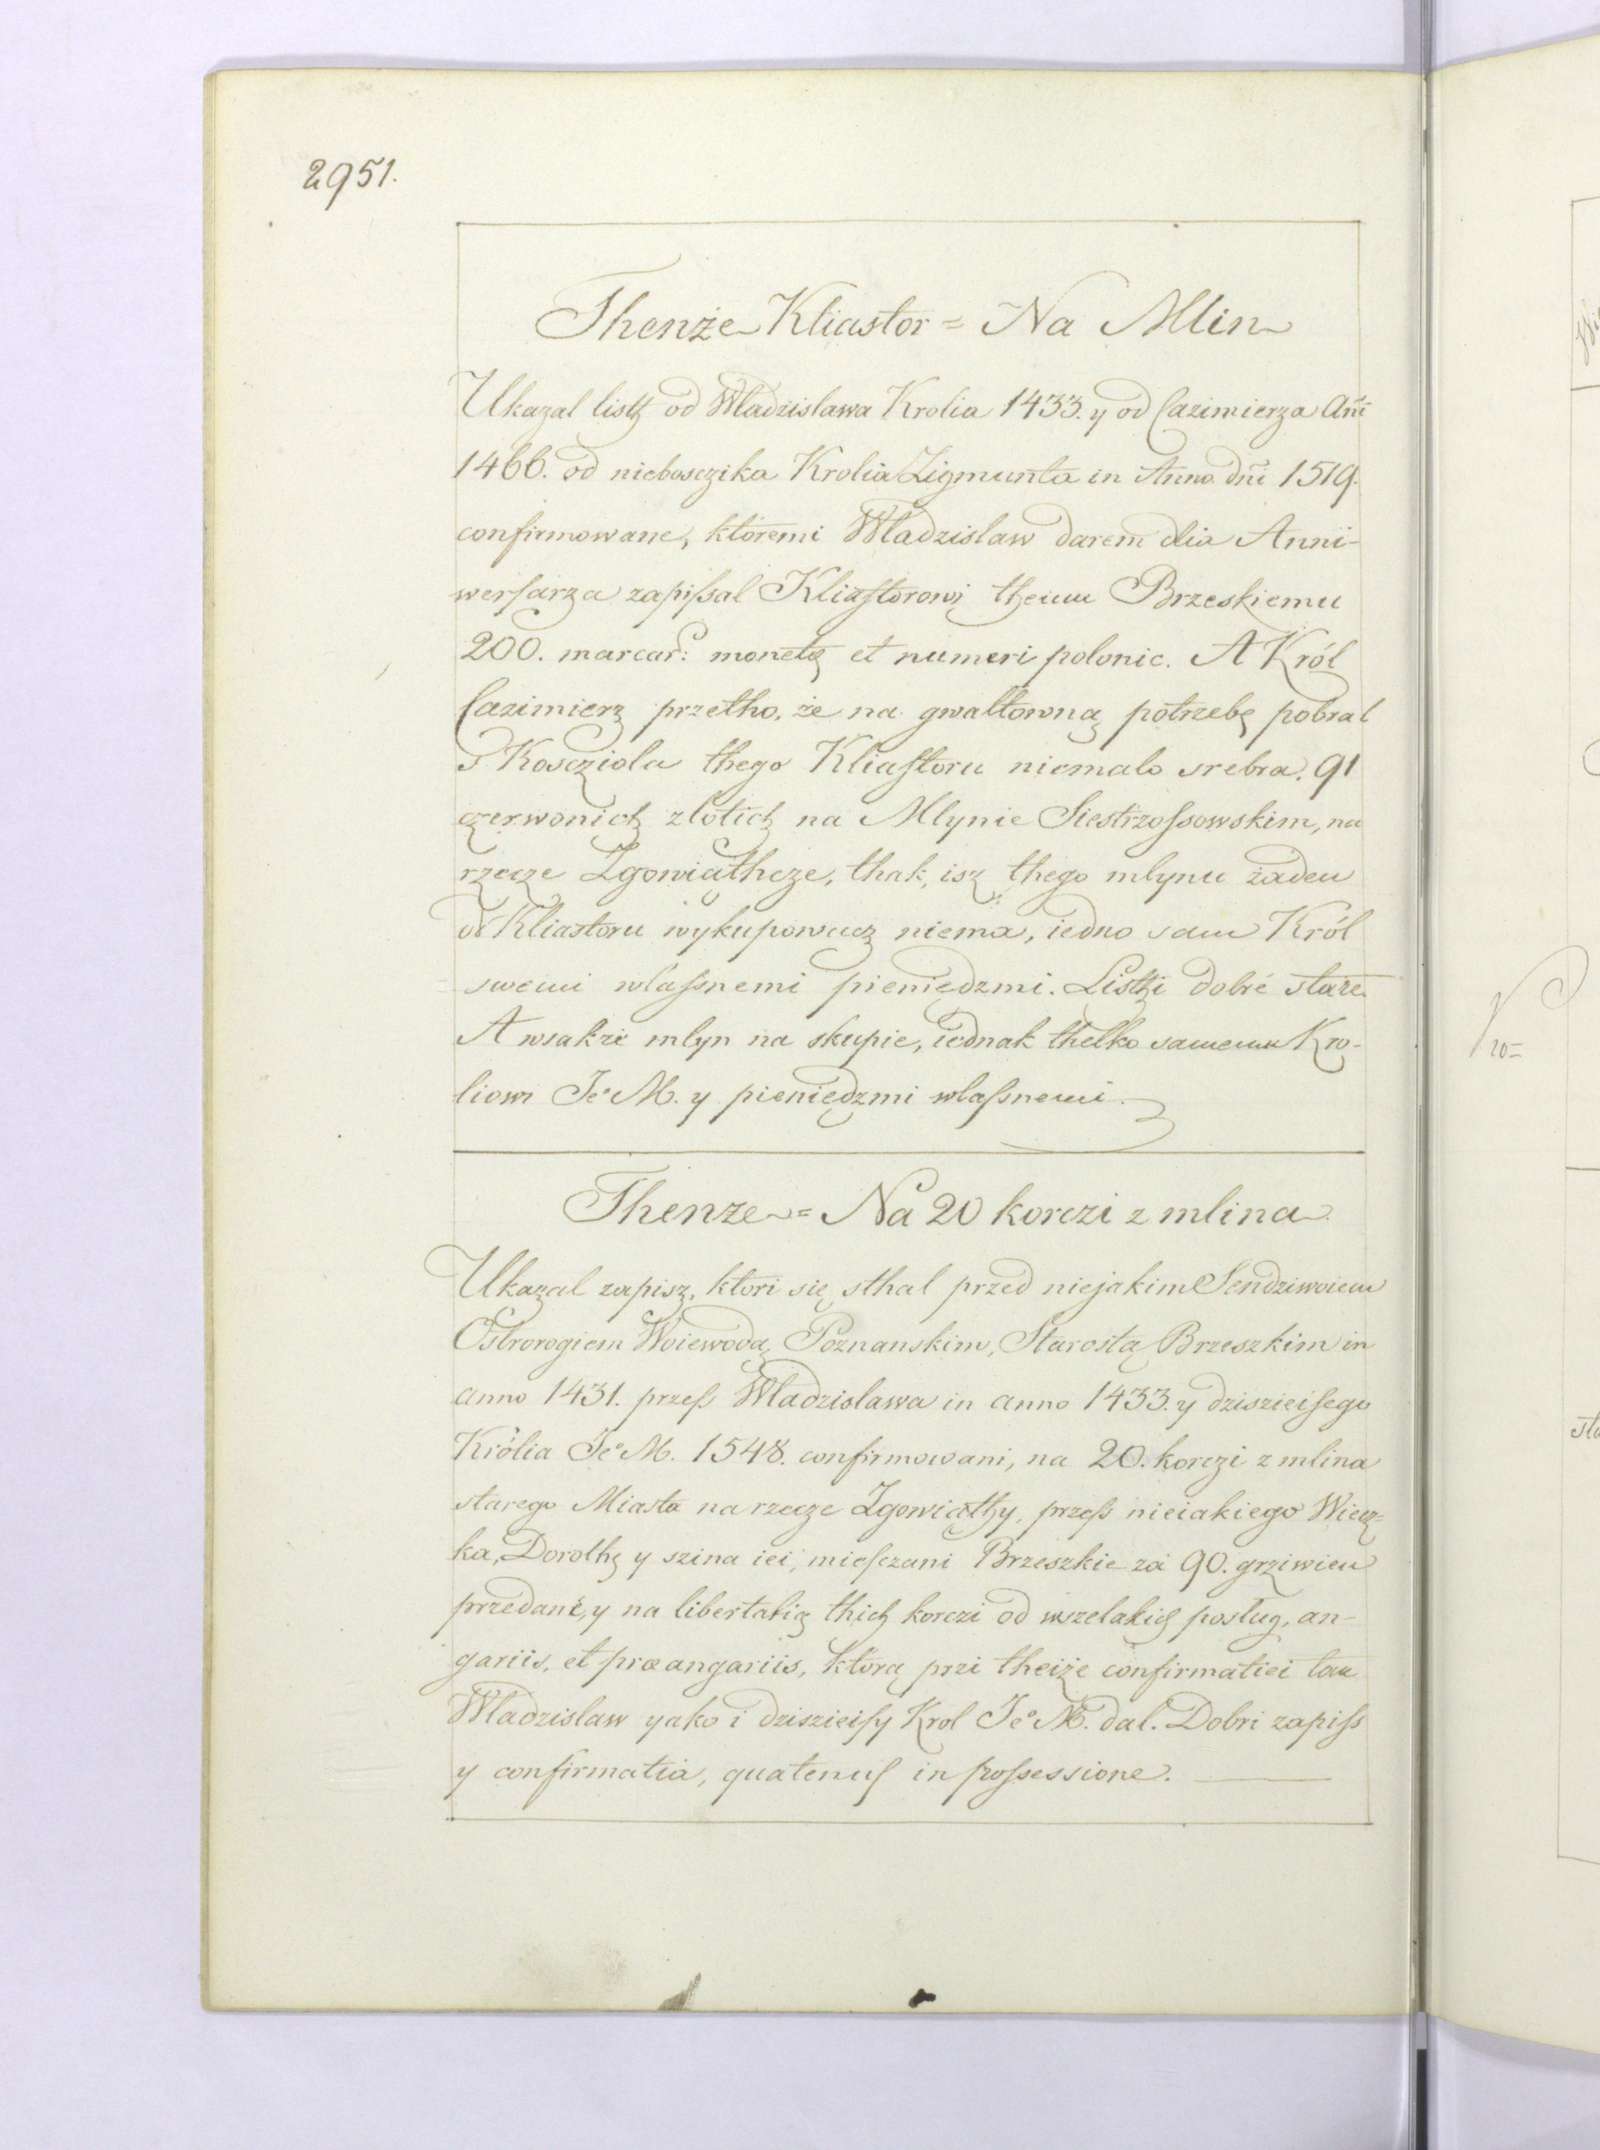 2951.
Thenże Kliastor = Na Mlin
Ukazal listÿ od Wladzislawa Krolia 1433. y od Cazimierza Añi
1466. od nieboszczika Krolia Zigmunta in Anno dñi 1519.
confirmowane, któremi Wladzislaw darem dlia Anni-
wersarza zapissal Kliastorowi themu Brzeskiemu
200. marcar: monetę et numeri polonic. A Król
Cazimierz przetho, że na gwaltowną potrzebę pobral
s Koscziola thego Kliastoru niemalo srebra, 91
czerwonich zlotich na Mlynie Siestrzossowskim, na
rzecze Zgowiąthcze, thak, isz thego mlynu żaden
od Kliastoru wykupowacz niema, iedno sam Król
swemi wlassnemi pieniędzmi. Listhi dobré staré.
A wsakże mlyn na skupie, iednak thelko samemu Kro-
liowi Je° M. y pieniędzmi wlassnemi.
Thenze = Na 20 korczi z mlina
Ukazal zapisz, ktori się sthal przed niejakim Sendziwoiem
Ostrorogiem Woiewodą Poznanskim, Starostą Brzeszkim in
anno 1431. przess Wladzislawa in anno 1433. y dziszieisego
Królia Je° M. 1548. confirmowani, na 20. korczi z mlina
starego Miasta na rzecze Zgowiąthy, przess nieiakiego Wiecz=
ka, Dorothę y szina iei, miesczani Brzeszkie za 90. grziwien
przedané, y na libertatią thich korczi od wszelakich poslug, an-
gariis, et præangariis, ktorą przi theiże confirmatiei tak
Wladzislaw yako i dziszieisy Krol Je° M. dal. Dobri zapiss
y confirmatia, quatenus in possessione.